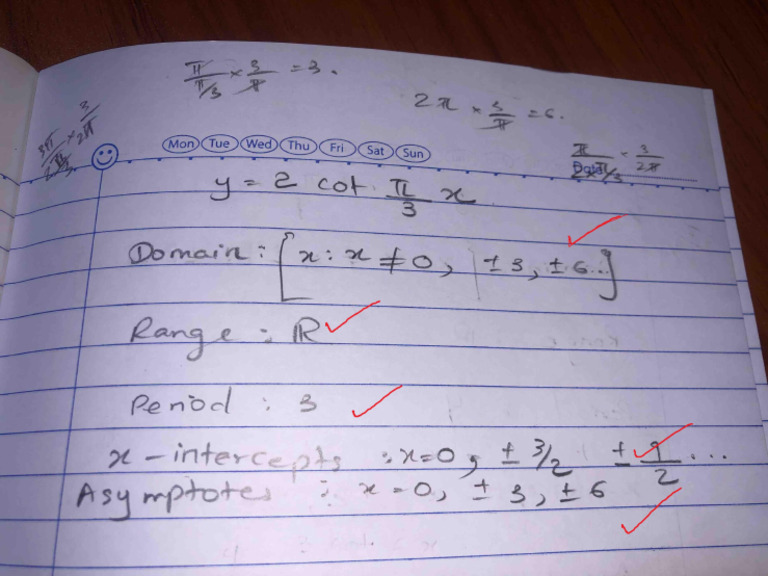 π/(π/3) × 3/π = 3.
2π × 3/π = 6.
Mon Tue Wed Thu Fri Sat Sun
y = 2 cot π/3 x
Domain : [x : x ≠ 0, ±3, ±6...]
Range : ℝ
Period : 3
x-intercepts : x=0, ± 3/2 ± 9/2 ...
Asymptotes : x=0, ±3, ±6